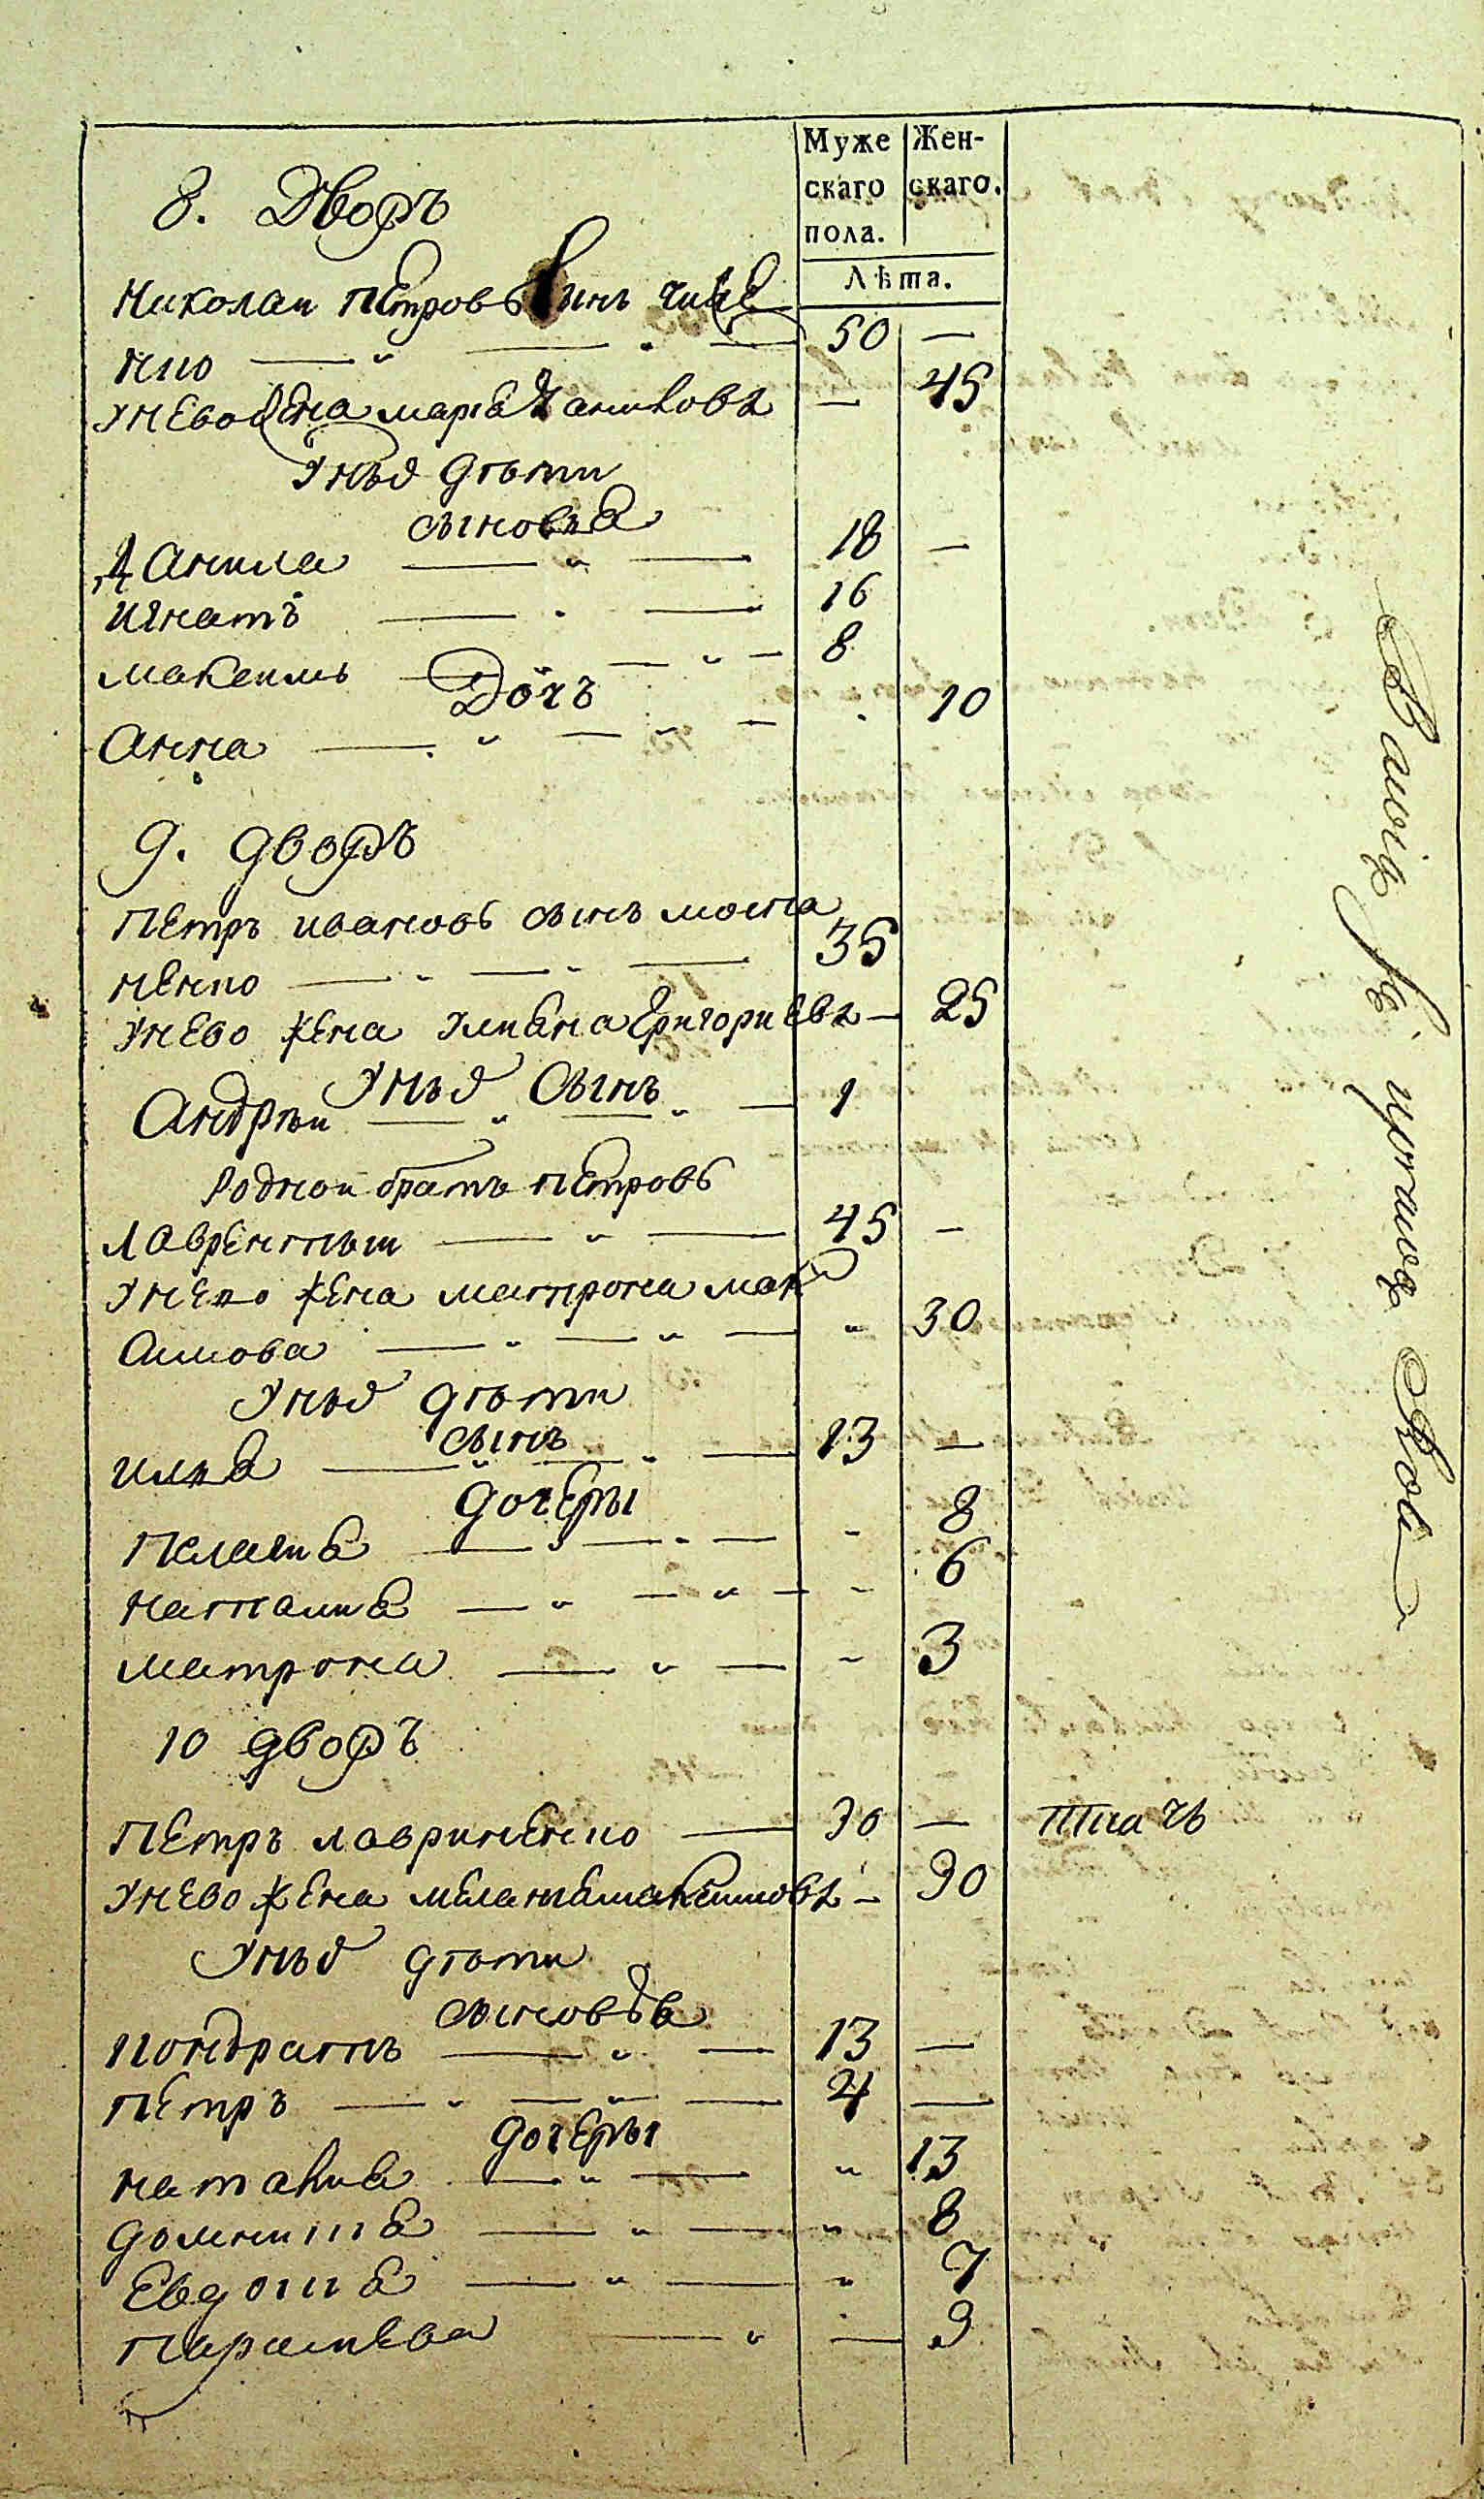 Муже
скаго
пола.
Жен-
скаго.
Лѣта.
8. Дворъ
Николаи Петровъ синъ
нко 50 —
Унево жена мария Даниловъ — 45
Унѣх дѣти
сыновья
Данила 18 —
Игнатъ 16
Максимъ 8
Дочъ
Анна 10
9. дворъ
Петръ ивановъ сынъ моска
ненко 35
Унево жена улияна григориевъ — 25
Унѣх Сынъ
Андрѣи 1
Родной братъ Петровъ
Лаврентѣи 45 —
Унево жена матрона мак
симова 30
Унѣх дѣти
сынъ
илья 13 —
дочеры
Пелагия 8
наталия 6
матрона 3
10 дворъ
Петръ лавриненко 30 — Ткачъ
Унево жена мелания максимовъ — 30
Унѣх дѣти
сыновья
Кондратъ 13 —
Петръ 4 —
дочеры
наталия 13
домникия 8
Евдокия 7
Параскева — 3